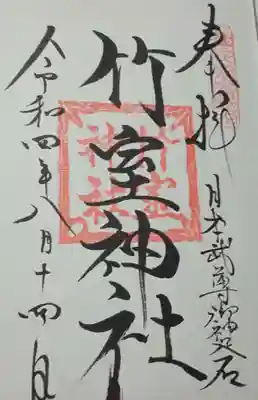 奉拝
日本武尊御
竹室神社
竹室
神社
令和四年八月十四日